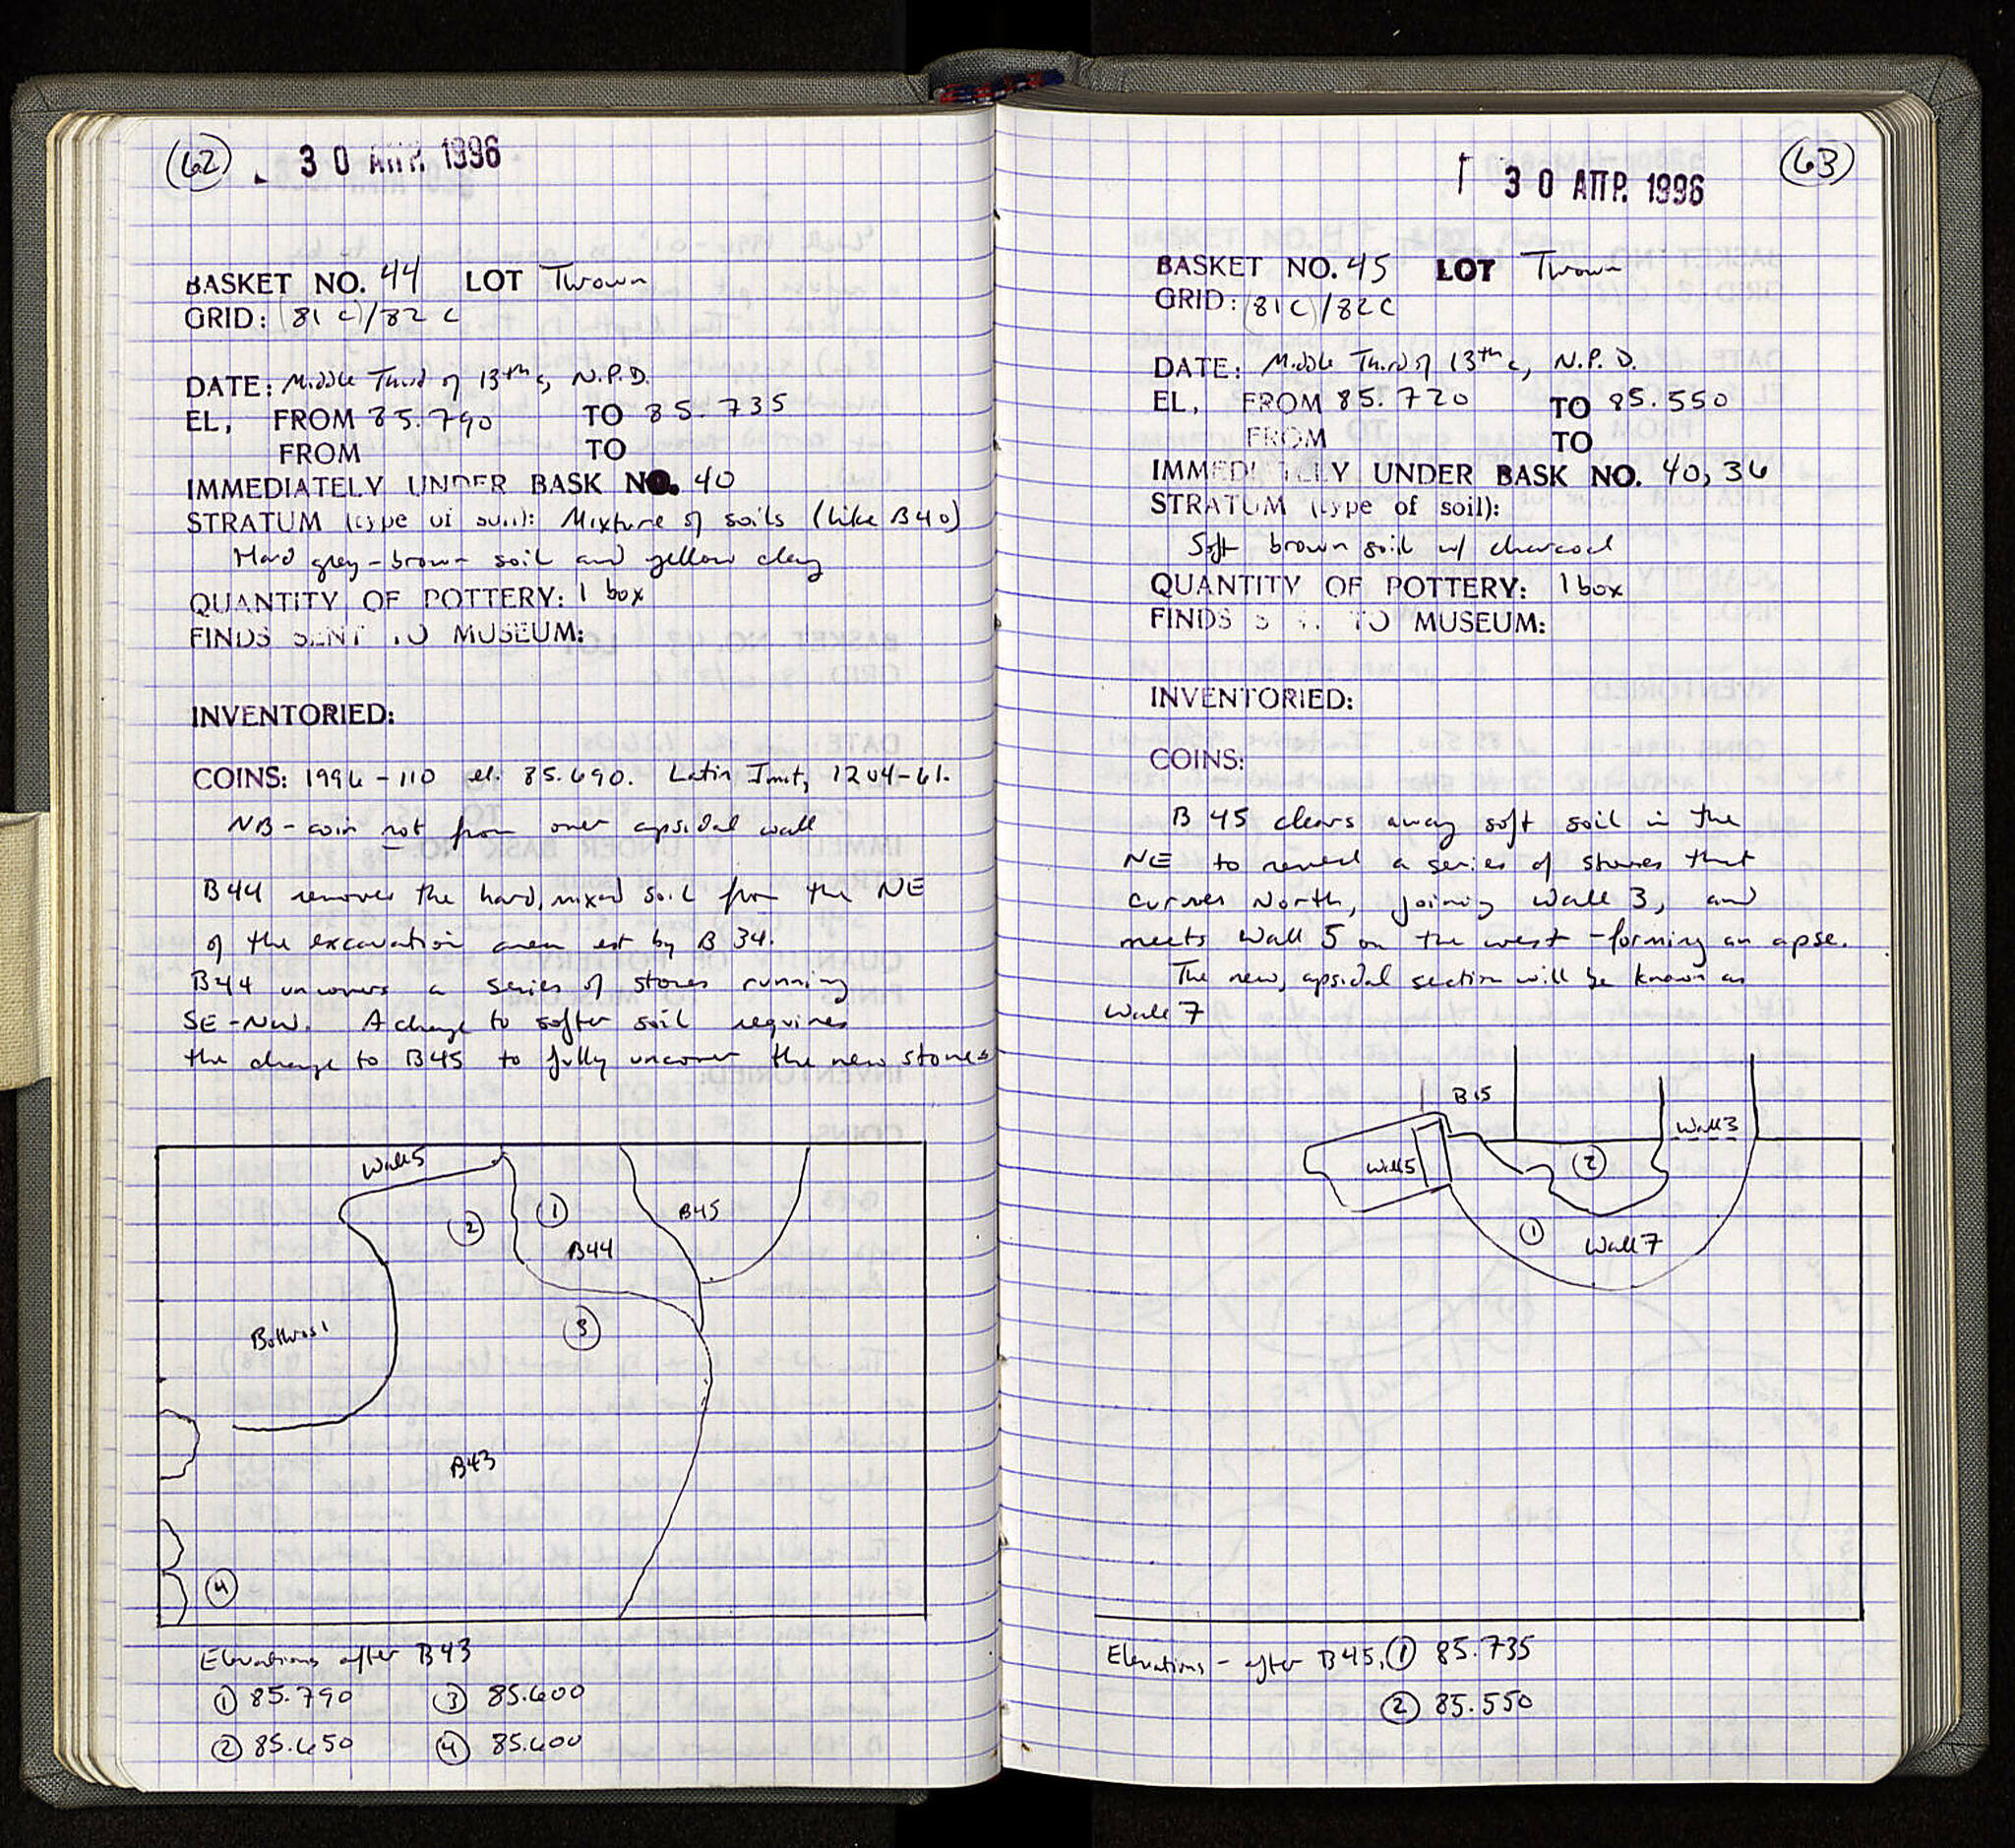 (62) 30 ΑΠΡ. 1996
BASKET NO. 44 LOT Thrown
GRID: (81 C)/82 C
DATE: Middle Third of 13th c, N.P.D.
EL, FROM 85.790 TO 85.735
FROM TO
IMMEDIATELY UNDER BASK NO. 40
STRATUM (type of soil): Mixture of soils (like B40)
Hard grey-brown soil and yellow clay
QUANTITY OF POTTERY: 1 box
FINDS SENT TO MUSEUM:
INVENTORIED:
COINS: 1996-110 el. 85.690. Latin Imit, 1204-61.
NB - coin not from over apsidal wall
B44 removes the hard, mixed soil from the NE
of the excavation area est by B 34.
B44 uncovers a series of stones running
SE-NW. A change to softer soil requires
the change to B45 to fully uncover the new stones
Wall 5
B45
①
②
B44
③
Bothros 1
B43
④
Elevations after B43
① 85.790 ③ 85.600
② 85.650 ④ 85.600
30 ΑΠΡ. 1996 (63)
BASKET NO. 45 LOT Thrown
GRID: (81C)/82C
DATE: Middle Third of 13th c, N.P.D.
EL, FROM 85.720 TO 85.550
FROM TO
IMMEDIATELY UNDER BASK NO. 40, 36
STRATUM (type of soil):
Soft brown soil w/ charcoal
QUANTITY OF POTTERY: 1 box
FINDS SENT TO MUSEUM:
INVENTORIED:
COINS:
B 45 clears away soft soil in the
NE to reveal a series of stones that
curves North, joining Wall 3, and
meets Wall 5 on the west - forming an apse.
The new, apsidal section will be known as
Wall 7
B15
Wall 3
Wall 5
②
①
Wall 7
Elevations - after B45, ① 85.735
② 85.550